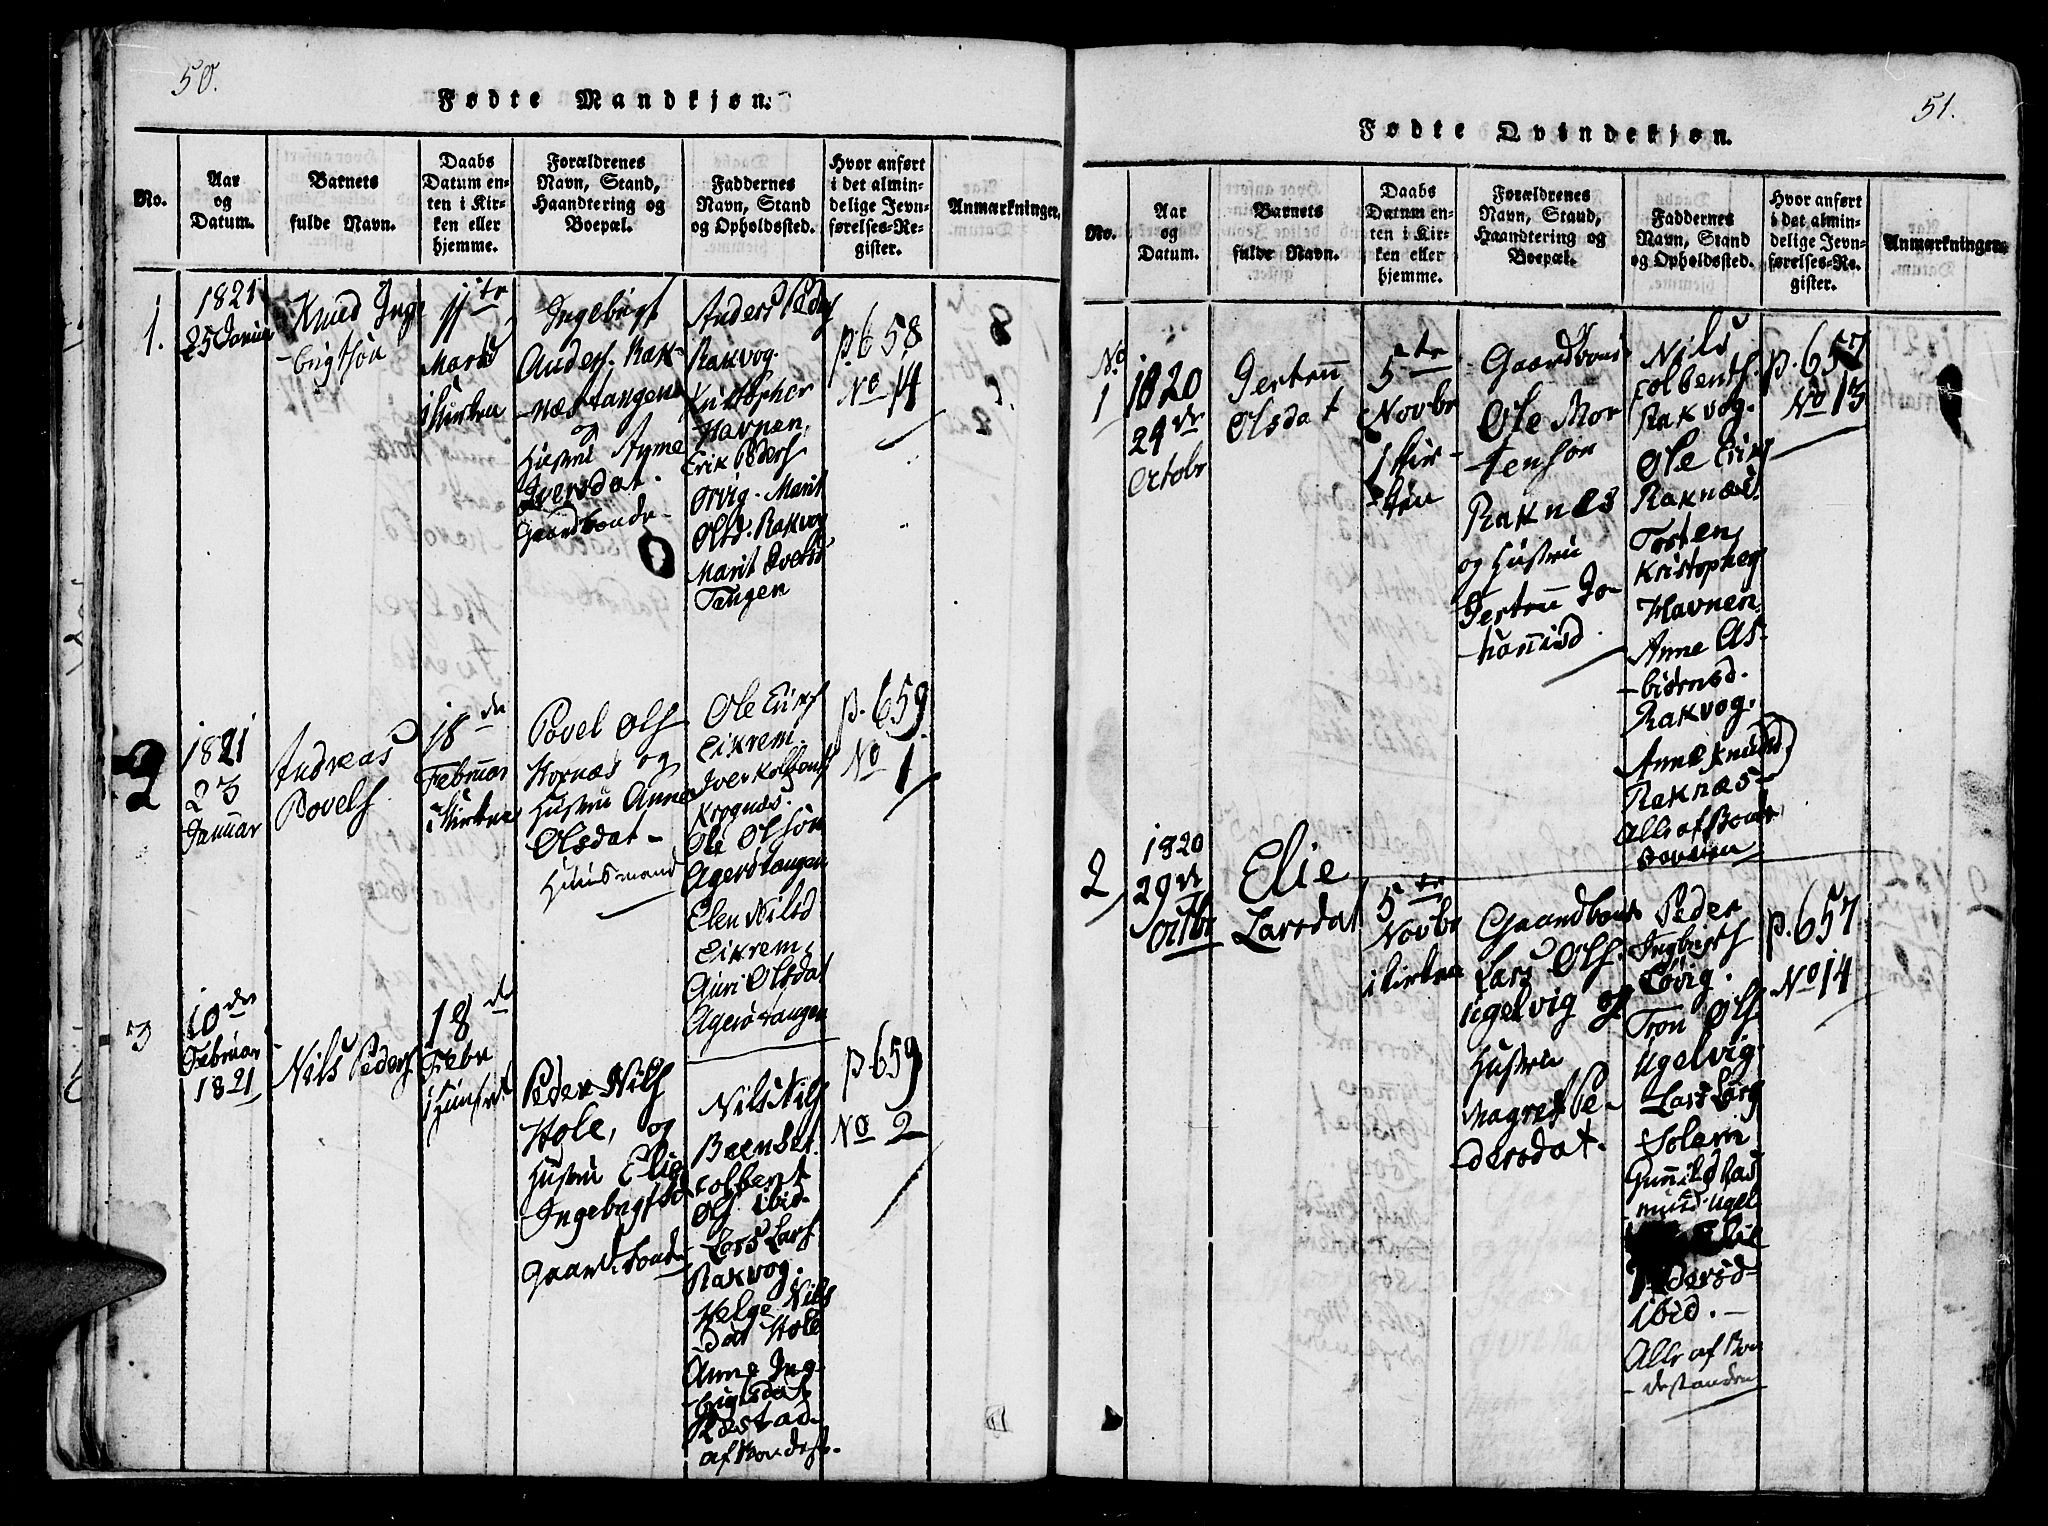 50.
Fødte Mandkjøn.
No.
Aar
og
Datum.
Barnets
fulde Navn.
Daabs
Datum en-
ten i Kir-
ken eller
hjemme.
Forældrenes
Navn, Stand,
Haandtering og
Boepæl.
Faddernes
Navn, Stand
og Opholdssted.
Hvor anført
i det almin-
delige Jevn-
førelses-Re-
gister.
Anmærkninger.
1.
1821
25 Januar
Knud Inge
-brigtsøn
11te
Marts
i Kirken
Ingebrigt
Anders. Rak-
-næstangen
og
Hustru Anne
Iversdat.
Gaardbonde-
Anders Peders
Rakvog.
Kristopher
Havnen,
Erik Peders
Orvig. Marit
Olsd. Rakvog
Marit Iversd
Tangen
p. 658
No 14
2
1821
23
Januar
Andreas
Povels
18de
Februar
i Kirken
Povel Ols
Hornæs og
Hustru Anne
Olsdat-
Huusmand
Ole Eriks
Eikrem.
Iver Kolbents
Krognæs.
Ole Olsøn
Agerøtangen
Elen Nilsd
Eikrem,
Guri Olsdat
Agerøtangen
p. 659
No 1
3
10de
Februar
1821
Nils Peders
18de
Febr
i Huuset
Peder Nils
Hole, og
Hustru Elie
Ingebrigtsd
Gaardbonde
Nils Nils
Baenset.
Colbent
Ols ibid.
Lars Lars
Rakvog.
Helge Nils
dat Hole
Anne Ing-
-brigtsdat
Idestad.
af Bondest.
p. 659
No 2
51.
Fødte Qvindekjøn.
No.
Aar
og
Datum.
Barnets
fulde Navn.
Daabs
Datum en-
ten i Kir-
ken eller
hjemme.
Forældrenes
Navn, Stand,
Haandtering og
Boepæl.
Faddernes
Navn, Stand
og Opholdssted.
Hvor anført
i det almin-
delige Jevn-
førelses-Re-
gister.
Anmærkninger.
No
1
1820
24de
Octobr
Gertru
Olsdat
5te
Novbr
i Kir-
-ken
Gaardbond
Ole Mor
-tensøn
Raknes
og Hustru
Gertru Jo-
-hannisd.
Nils
Colbents.
Rakvog.
Ole Erik
Raknæs.
Torsten
Kristophers
Havnen.
Anne As-
-biørnsd.
Rakvog.
Anne Knudsd
Raknæs-
Alle af Bonde
standen
p. 657
No 13
2
1820
29de
Octbr
Elie
Larsdat
5te
Novbr
i Kirken
Gaardbonde
Lars Ols.
Ugelvig og
Hustru
Magret Pe-
-dersdat.
Peder
Ingbrigts
Løvig.
Tron Ols
Ugelvig.
Lars Lars
Solem
Gunnild Ras
-musd. Ugel
Elie
Pedersd-
ibid.-
Alle af Bon
-destanden
p. 657
No 14